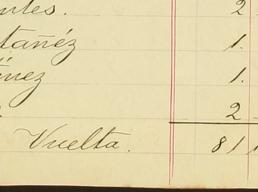 ntes. 2
tañéz 1.
ñez 1.
2
Vuelta. 81